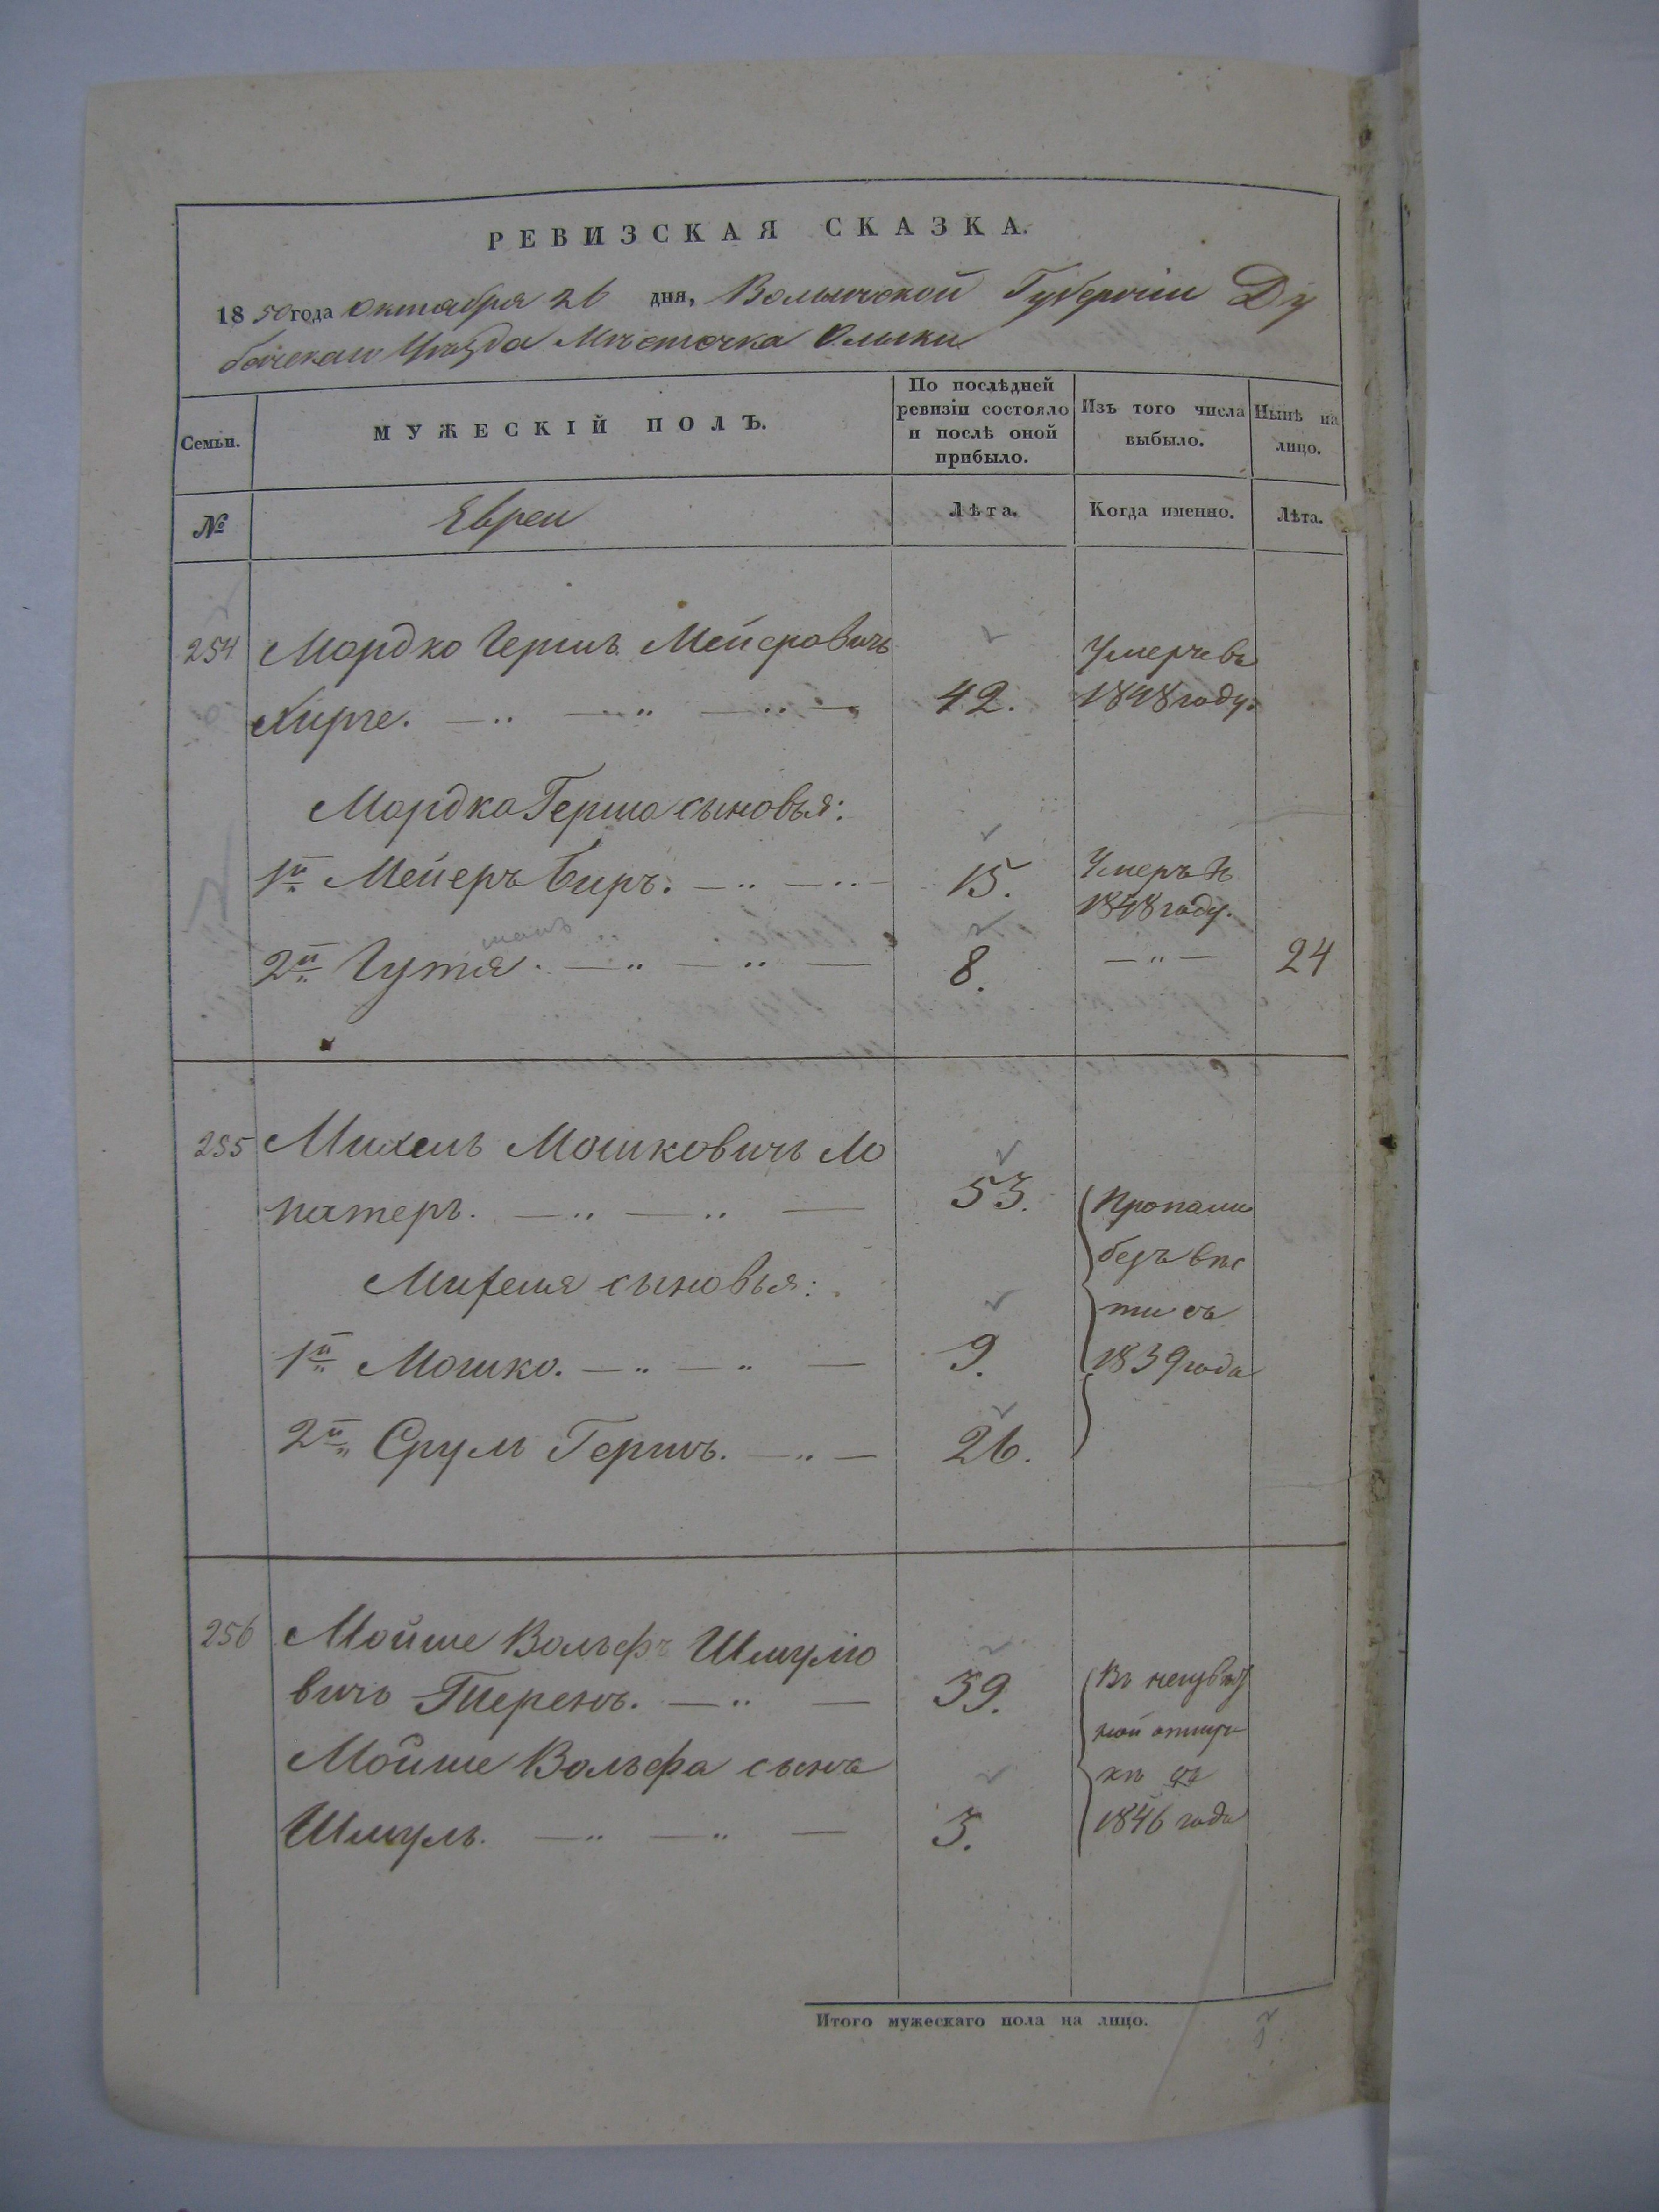 РЕВИЗСКАЯ СКАЗКА.
1850 года Октября 26 дня, Волынской Губернiи Ду
бенскаго Уѣзда Мѣстечка Олыки
Семьи.
МУЖЕСКIЙ ПОЛЪ.
По послѣдней ревизiи состояло и послѣ оной прибыло.
Изъ того числа выбыло.
Нынѣ на лицо.
№
Евреи
Лѣта.
Когда именно.
Лѣта.
254 Мордко Гершъ Мейеровичъ Умеръ въ
42. 1848 году.
Мордка Герша сыновья:
1й Мейеръ Беръ. 15. Умеръ въ
1848 году.
2й 8. 24
255 Михель Мошковичъ Ло
патеръ. 53. Пропали
безъ вѣс
Михеля сыновья:
ти съ
1й Мошко. 9. 1839 года
2й Срулъ Гершъ. 26.
256 Мойше Вольфъ Шмулiо
вичъ 39. Въ неизвѣст
ной отлуч
Мойше Вольфа сынъ
кѣ съ
Шмуль. 3. 1846 года
Итого мужескаго пола на лицо. 1